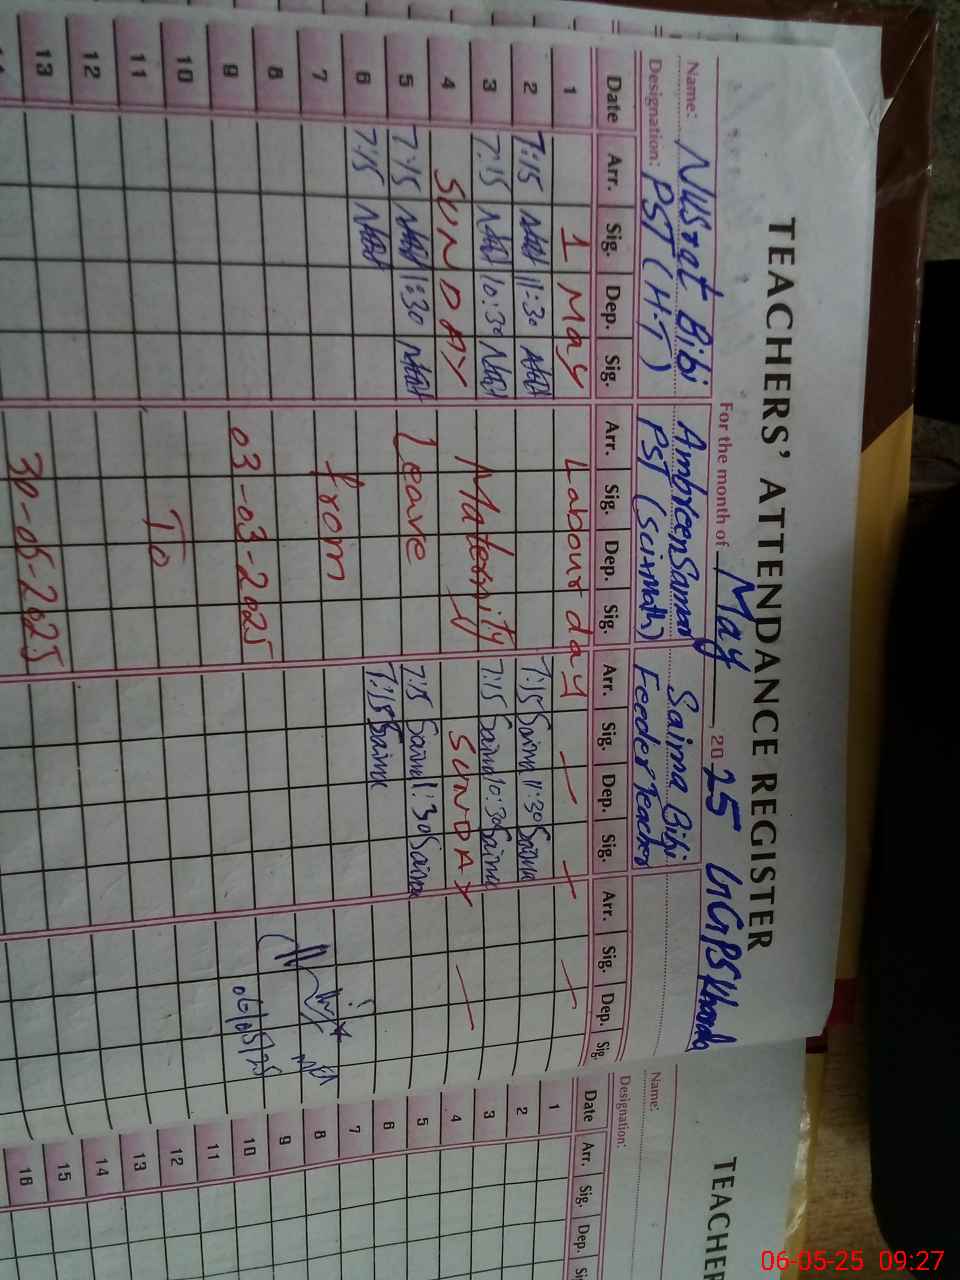 TEACHERS' ATTENDANCE REGISTER
For the month of May 2025 GGPS
Name: Nusrat Bibi Ambreen Samar Saima Bibi
Designation: PST (H.T) PST (Sci+Math) Feeder Teacher
Date Arr. Sig. Dep. Sig. Arr. Sig. Dep. Sig. Arr. Sig. Dep. Sig. Arr. Sig. Dep. Sig.
1 1 May Labour day
2 7:15 11:30 7:15 Saima 11:30 Saima
3 7:15 10:30 Maternity 7:15 Saima 10:30 Saima
4 SUNDAY SUNDAY
5 7:15 11:30 Leave 7:15 Saima 11:30 Saima
6 7:15 7:15 Saima
7 from
8
9 03-03-2025 06/05/25
10
11 To
12
13 30-05-2025
TEACHER
Name:
Designation:
Date Arr. Sig. Dep.
1
2
3
4
5
6
7
8
9
10
11
12
13
14
15
16
06-05-25 09:27